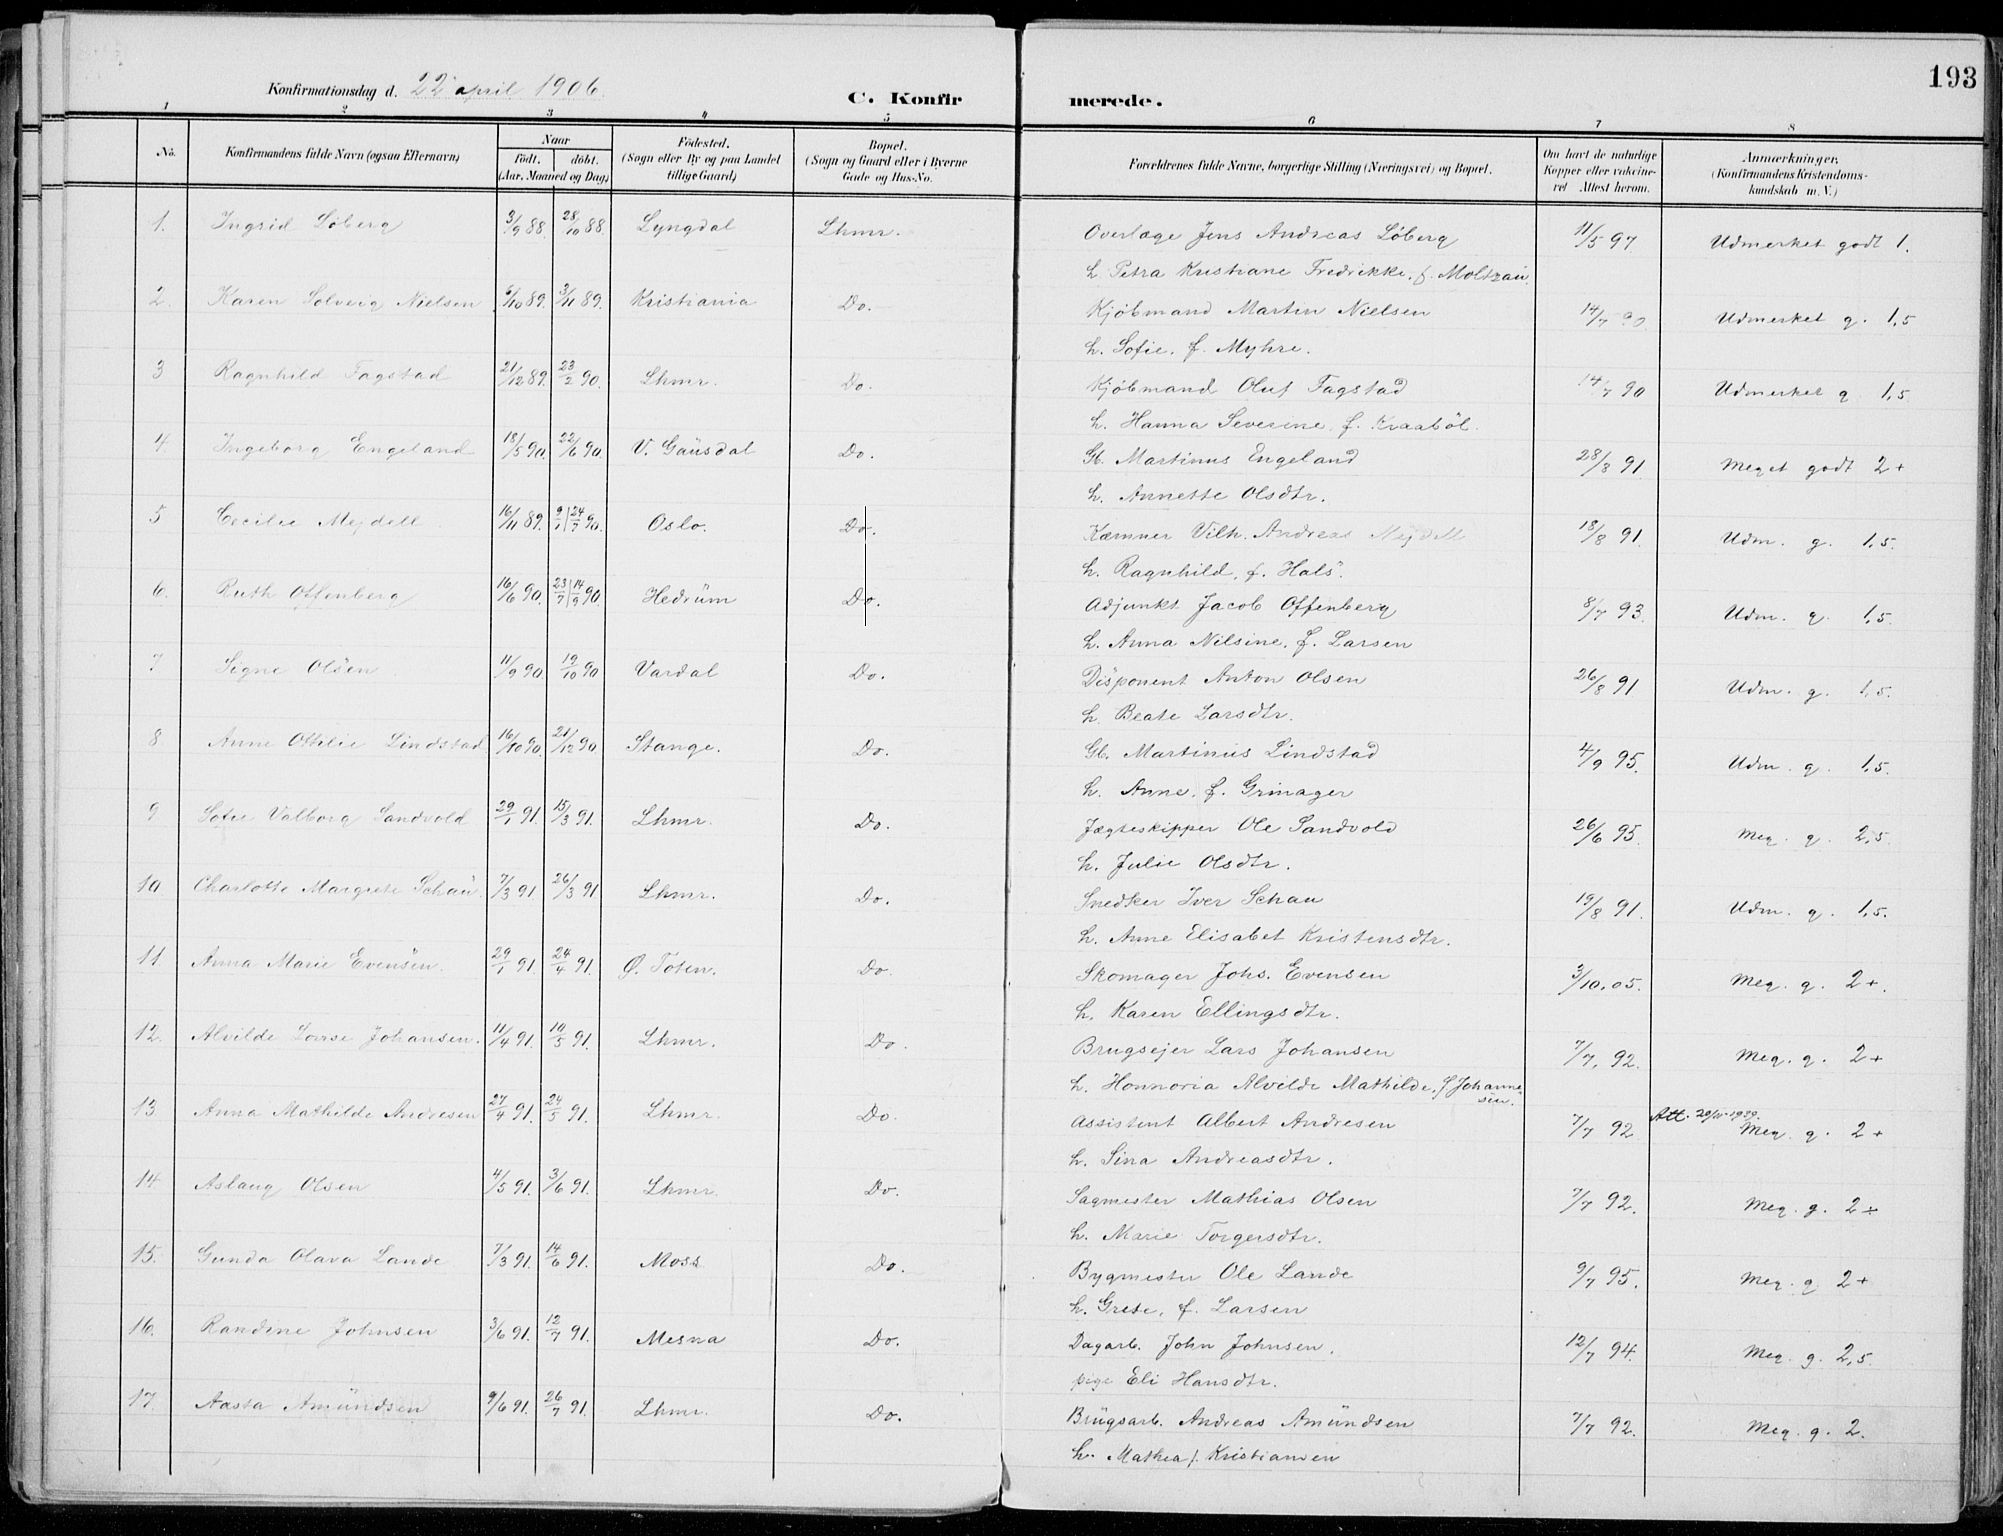 193
Konfirmationsdag d. 22 april 1906.
C. Konfirmerede.
1 2 3 4 5 6 7 8
No. Konfirmandens fulde Navn (ogsaa Efternavn) Naar födt. döbt. (Aar, Maaned og Dag) Födested. (Sogn eller By og paa Landet tillige Gaard) Bopæl. (Sogn og Gaard eller i Byerne Gade og Hus-No. Forældrenes fulde Navne, borgerlige Stilling (Næringsvei) og Bopæl. Om havt de naturlige Kopper eller vakcineret Attest herom. Anmærkninger. (Konfirmandens Kristendomskundskab m. V.)
1. Ingrid Löberg 3/9 88. 28/10 88. Lyngdal Lhmr. Overlæge Jens Andreas Löberg 11/5 97 Udmerket godt 1.
h. Petra Kristiane Fredrikke, f. Moltzau.
2. Karen Solveig Nielsen 6/10 89. 3/11 89. Kristiania Do. Kjöbmand Martin Nielsen 14/7 90 Udmerket g. 1,5
h. Sofie, f. Myhre.
3 Ragnhild Fagstad 21/12 89. 23/2 90. Lhmr. Do. Kjöbmand Oluf Fagstad 14/7 90 Udmerket g. 1,5.
h. Hanna Severine, f. Kraaböl.
4 Ingeborg Engeland 18/5 90. 22/6 90. V. Gausdal Do. Gb. Martinus Engeland 28/8 91 Meget godt 2+
h. Annette Olsdtr.
5 Cecilie Mejdell 16/11 89. 9/1 | 24/7 90. Oslo. Do. Kæmner Vilh. Andreas Mejdell 18/8 91. Udm. g. 1,5.
h. Ragnhild, f. Hals.
6. Ruth Offenberg 16/6 90. 23/7 | 14/9 90. Hedrum Do. Adjunkt Jacob Offenberg 8/7 93. Udm. g. 1,5.
h. Anna Nilsine, f. Larsen
7 Signe Olsen 11/9 90. 19/10 90 Vardal Do. Disponent Anton Olsen 26/8 91 Udm. g. 1,5.
h. Beate Larsdtr.
8 Anne Othilie Lindstad 16/10 90. 21/12 90. Stange. Do. Gb. Martinus Lindstad 4/9 95. Udm. g. 1,5.
h. Anne, f. Grinager
9 Sofie Valborg Sandvold 29/1 91. 15/3 91. Lhmr. Do. Jægteskipper Ole Sandvold 26/6 95. Meg. g. 2,5.
h. Julie Olsdtr.
10 Charlotte Margrete Schau. 7/3 91. 26/3 91 Lhmr. Do. Snedker Iver Schau 19/8 91. Udm. g. 1,5.
h. Anne Elisabet Kristensdtr.
11 Anna Marie Evensen. 29/1 91. 24/4 91. Ø. Toten. Do. Skomager Johs. Evensen 3/10. 05. Meg. g. 2+.
h. Karen Ellingsdtr.
12. Alvilde Lovise Johansen. 11/4 91. 10/5 91. Lhmr. Do. Brugsejer Lars Johansen 7/7. 92. Meg. g. 2+
h. Honnoria Alvilde Mathilde, f. Johannesen.
13. Anna Mathilde Andresen 27/4 91. 24/5 91. Lhmr. Do. Assistent Albert Andresen 7/7 92 Att. 29/IV-1939. Meg. g. 2+
h. Sina Andreasdtr.
14 Aslaug Olsen 4/5 91. 3/6 91. Lhmr. Do. Sagmester Mathias Olsen 7/7 92. Meg. g. 2+
h. Marie Torgersdtr.
15. Gunda Olava Lande 7/3 91. 14/6 91. Moss Do. Bygmester Ole Lande 9/7 95. Meg. g 2+
h. Grete, f. Larsen
16. Randine Johnsen 3/6 91. 12/7 91. Mesna Do. Dagarb. John Johnsen. 12/7 94. Meg. g. 2,5.
pige Eli Hansdtr.
17. Aasta Amundsen 9/6 91. 26/7 91. Lhmr. Do. Brugsarb. Andreas Amundsen 7/7 92. Meg. g. 2.
h. Mathea f. Kristiansen